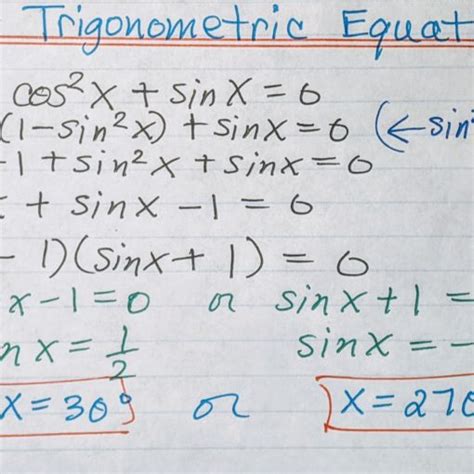 Trigonometric Equat
cos²x + sinx = 0
(1-sin²x) + sinx = 0 (←sin²
-1 + sin²x + sinx = 0
+ sinx - 1 = 0
- 1)(sinx + 1) = 0
x - 1 = 0 or sinx + 1 =
n x = 1/2 sinx = -
x = 30° or x = 270